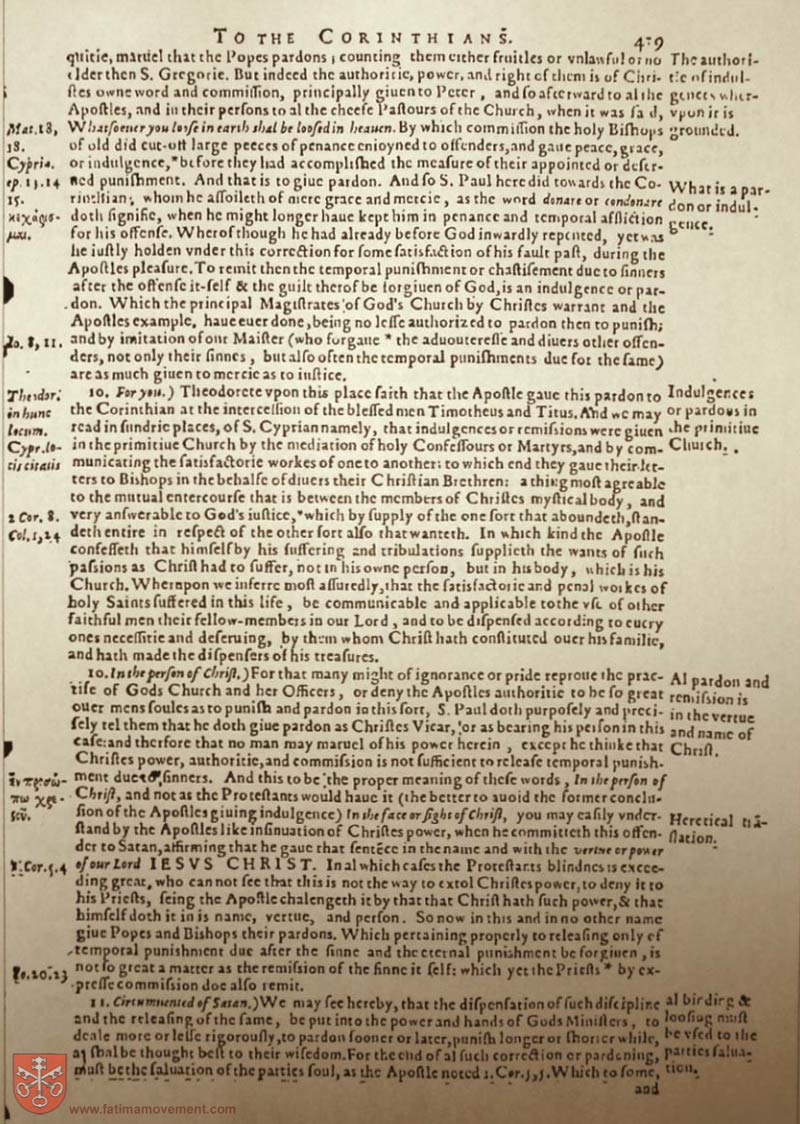 TO THE CORINTHIANS.
quitie, maruel that the Popes pardons; counting them either fruitles or vnlawful or no
elder then S. Gregorie. But indeed the authoritie, power, and right of them is of Chri-
stes owne word and commission, principally giuen to Peter, and so afterward to al the
Apostles, and in their persons to al the cheefe Pastours of the Church, when it was said,
Whatsoeuer you loose in earth shal be loosed in heauen. By which commission the holy Bishops
of old did cut-off large peeces of penance enioyned to offenders, and gaue peace, grace,
or indulgence, *before they had accomplished the measure of their appointed or deser-
ued punishment. And that is to giue pardon. And so S. Paul here did towards the Co-
rinthian; whom he assoileth of mere grace and mercie, as the word donare or condonare
doth signifie, when he might longer haue kept him in penance and temporal affliction
for his offense. Wherof though he had already before God inwardly repented, yet was
he iustly holden vnder this correction for some satisfaction of his fault past, during the
Apostles pleasure. To remit then the temporal punishment or chastisement due to sinners
after the offense it-self & the guilt therof be forgiuen of God, is an indulgence or par-
don. Which the principal Magistrates of God's Church by Christes warrant and the
Apostles example, haue euer done, being no lesse authorized to pardon then to punish;
and by imitation of our Maister (who forgaue * the aduouteresse and diuers other offen-
ders, not only their sinnes, but also often the temporal punishments due for the same)
are as much giuen to mercie as to iustice.
10. For you.) Theodorete vpon this place saith that the Apostle gaue this pardon to
the Corinthian at the intercession of the blessed men Timotheus and Titus. And we may
read in sundrie places, of S. Cyprian namely, that indulgences or remissions were giuen
in the primitiue Church by the mediation of holy Confessours or Martyrs, and by com-
municating the satisfactorie workes of one to another: to which end they gaue their let-
ters to Bishops in the behalfe of diuers their Christian Brethren: a thing most agreable
to the mutual entercourse that is between the members of Christes mystical body, and
very answerable to God's iustice, *which by supply of the one sort that aboundeth, stan-
deth entire in respect of the other sort also that wanteth. In which kind the Apostle
confesseth that himself by his suffering and tribulations supplieth the wants of such
passions as Christ had to suffer, not in his owne person, but in his body, which is his
Church. Wherupon we inferre most assuredly, that the satisfactorie and penal workes of
holy Saints suffered in this life, be communicable and applicable to the vse of other
faithful men their fellow-members in our Lord, and to be dispensed according to euery
ones necessitie and deseruing, by them whom Christ hath constituted ouer his familie,
and hath made the dispensers of his treasures.
10. In the person of Christ.) For that many might of ignorance or pride reproue the prac-
tise of Gods Church and her Officers, or deny the Apostles authoritie to be so great
ouer mens soules as to punish and pardon in this sort, S. Paul doth purposely and preci-
sely tel them that he doth giue pardon as Christes Vicar, or as bearing his person in this
case: and therfore that no man may maruel of his power herein, except he thinke that
Christes power, authoritie, and commission is not sufficient to release temporal punish-
ment due to sinners. And this to be the proper meaning of these words, In the person of
Christ, and not as the Protestants would haue it (the better to auoid the former conclu-
sion of the Apostles giuing indulgence) In the face or sight of Christ, you may easily vnder-
stand by the Apostles like insinuation of Christes power, when he committeth this offen-
der to Satan, affirming that he gaue that sentēce in the name and with the vertue or power
of our Lord IESVS CHRIST. In al which cases the Protestants blindnes is excee-
ding great, who can not see that this is not the way to extol Christes power, to deny it to
his Priests, seing the Apostle chalengeth it by that that Christ hath such power, & that
himself doth it in is name, vertue, and person. So now in this and in no other name
giue Popes and Bishops their pardons. Which pertaining properly to releasing only of
temporal punishment due after the sinne and the eternal punishment be forgiuen, is
not so great a matter as the remission of the sinne it self: which yet the Priests * by ex-
presse commission doe also remit.
11. Circumuented of Satan.) We may see hereby, that the dispensation of such discipline
and the releasing of the same, be put into the power and hands of Gods Ministers, to
deale more or lesse rigorously, to pardon sooner or later, punish longer or shorter while,
as shal be thought best to their wisedom. For the end of al such correction or pardoning,
must be the saluation of the parties soul, as the Apostle noted 1. Cor. 5, 5. Which to some,
and
Mat. 18,
18.
Cypria.
ep. 13. 14
15.
Io. 8, 11.
Theodor.
in hunc
locum.
Cypr. lo-
cis citatis
2 Cor. 8.
Col. 1, 24
ἐν προσώ-
πῳ χρι-
στοῦ.
1. Cor. 5. 4
Io. 20. 23
The authori-
tie of indul-
gences wher-
vpon it is
grounded.
What is a par-
don or indul-
gence.
Indulgences
or pardons in
the primitiue
Church.
Al pardon and
remission is
in the vertue
and name of
Christ.
Heretical trā-
slation.
al birding &
loosing must
be vsed to the
parties salua-
tion.
www.fatimamovement.com